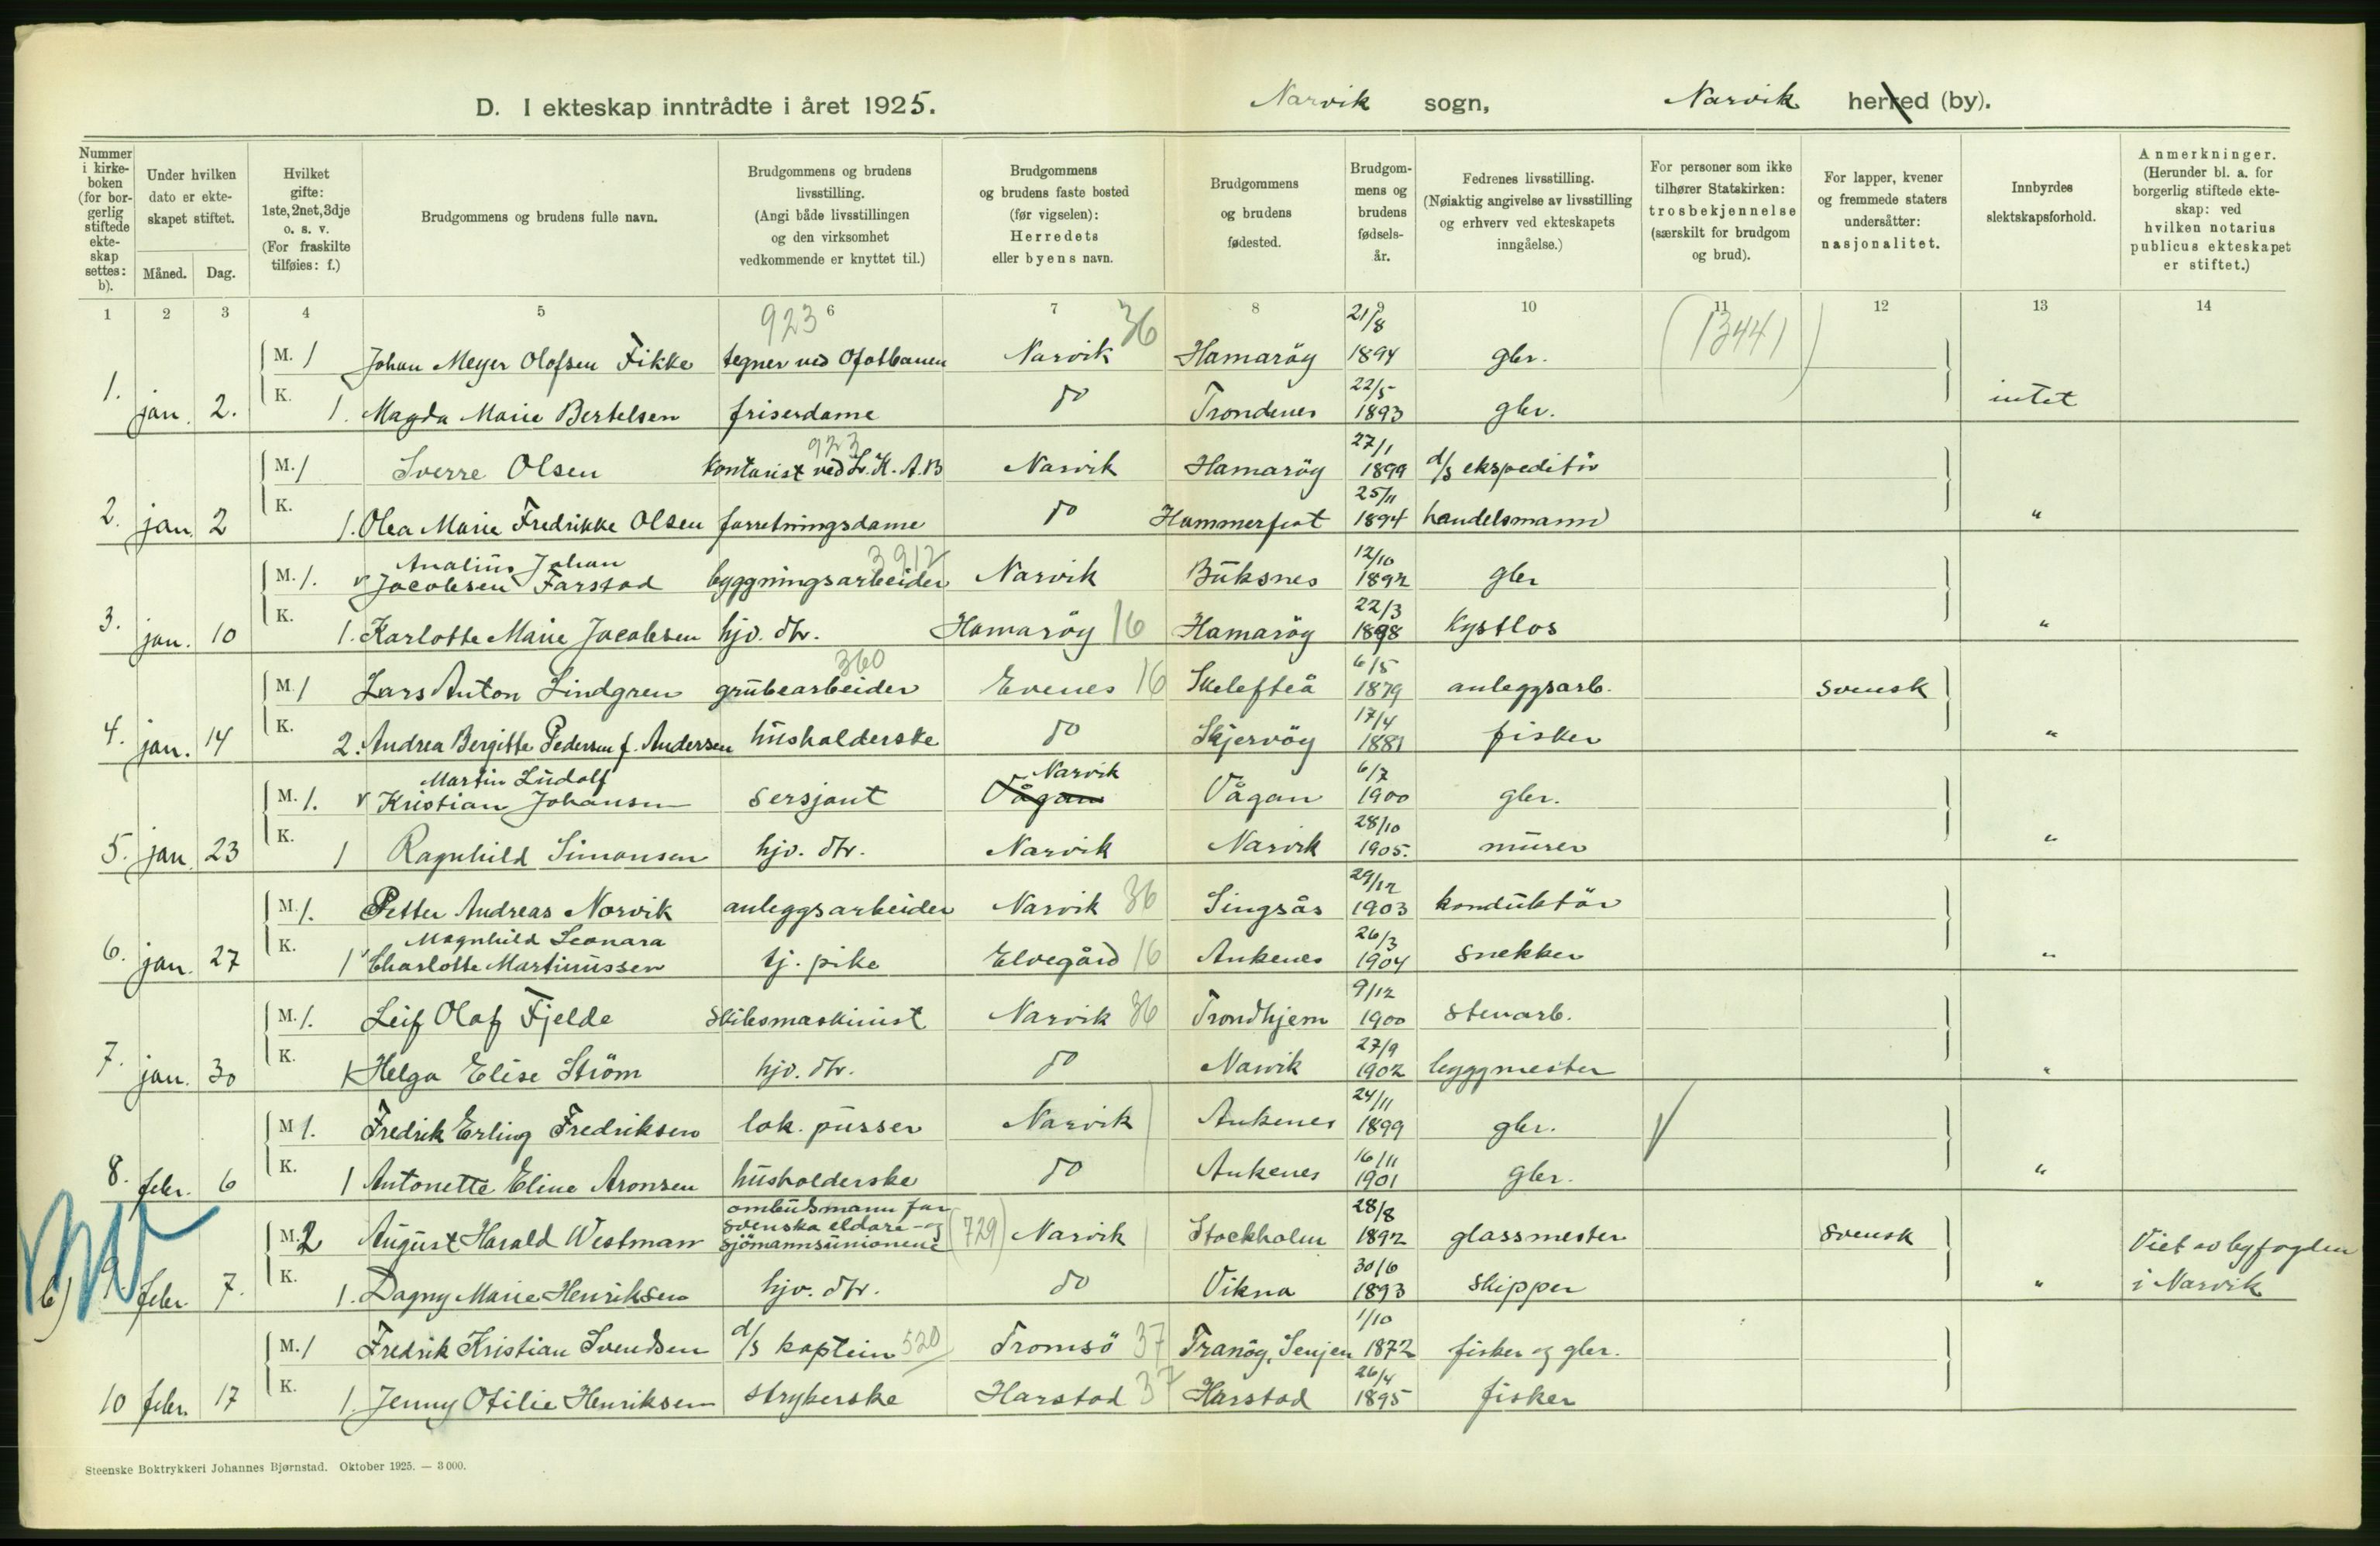 D. I ekteskap inntrådte i året 1925. Narvik sogn, Narvik herred (by).
Nummer i kirke-boken (for bor-gerlig stiftede ekte-skap settes: b).
Under hvilken dato er ekte-skapet stiftet.
Måned. Dag.
Hvilket gifte: 1ste, 2net, 3dje o. s. v. (For fraskilte tilføies: f.)
Brudgommens og brudens fulle navn.
Brudgommens og brudens livsstilling. (Angi både livsstillingen og den virksomhet vedkommende er knyttet til.)
Brudgommens og brudens faste bosted (før vigselen): Herredets eller byens navn.
Brudgommens og brudens fødested.
Brudgom-mens og brudens fødsels-år.
Fedrenes livsstilling. (Nøiaktig angivelse av livsstilling og erhverv ved ekteskapets inngåelse.)
For personer som ikke tilhører Statskirken: trosbekjennelse (særskilt for brudgom og brud).
For lapper, kvener og fremmede staters undersåtter: nasjonalitet.
Innbyrdes slektskapsforhold.
Anmerkninger. (Herunder bl. a. for borgerlig stiftede ekte-skap: ved hvilken notarius publicus ekteskapet er stiftet.)
1 2 3 4 5 6 7 8 9 10 11 12 13 14
923 36 21/8 (13441)
M. 1 Johan Meyer Olofsen Fikke tegner ved Ofotbanen Narvik Hamaröy 1894 gbr.
22/5
1. jan. 2. K. 1. Magda Marie Bertelsen friserdame do Trondenes 1893 gbr. intet
923 27/1
M. 1 Sverre Olsen kontorist ved L. K. A. B Narvik Hamaröy 1899 d/s ekspeditör
25/11
2. jan. 2 K. 1. Olea Marie Fredrikke Olsen forretningsdame do Hammerfest 1894 handelsmann "
Analius Johan 3912 12/10
M. 1. v Jacobsen Farstad byggningsarbeider Narvik Buksnes 1892 gbr
22/3
3. jan. 10 K. 1. Karlotte Marie Jacobsen hjv. dtr. Hamaröy 16 Hamaröy 1898 Kystlos "
360 6/5
M. 1 Lars Anton Lindgren grubearbeider Evenes 16 Skelefteå 1879 anleggsarb. svensk
17/4
4. jan. 14 K. 2. Andrea Bergitte Pedersen f. Andersen husholderske do Skjervöy 1881 fisker "
Martin Ludolf Narvik 6/7
M. 1. v Kristian Johansen sersjant Vågan Vågan 1900 gbr.
28/10
5. jan. 23 K. 1 Ragnhild Simonsen hjv. dtr. Narvik Narvik 1905. murer "
29/12
M. 1. Petter Andreas Norvik anleggsarbeider Narvik 36 Singsås 1903 konduktör
Magnhild Leonara 26/3
6. jan. 27 K. 1 v Charlotte Martinussen tj. pike Elvegård 16 Ankenes 1904 snekker "
9/12
M. 1. Leif Olaf Fjelde Skibsmaskinist Narvik 36 Trondhjem 1900 stenarb.
27/9
7. jan. 30 K. 1 Helga Elise Ström hjv. dtr. do Narvik 1902 byggmester "
24/11
M 1. Fredrik Erling Fredriksen lok. pusser Narvik Ankenes 1899 gbr.
16/11
8. febr. 6 K. 1 Antonette Eline Aronsen husholderske do Ankenes 1901 gbr. "
ombudsmann for 28/8
svenska eldare- og
M. 2 August Harald Westman sjömannsunionene (729) Narvik Stockholm 1892 glassmester svensk Viet av byfogden
30/6
b) 9. febr 7. K. 1. Dagny Marie Henriksen hjv. dtr. do Vikna 1893 skipper " i Narvik
1/10
M. 1 Fredrik Kristian Svendsen d/s kaptein 520 Tromsö 37 Tranöy, Senjen 1872 fisker og gbr.
26/4
10 febr. 17 K. 1. Jenny Otilie Henriksen strykerske Harstad 37 Harstad 1895 fisker
Steenske Boktrykkeri Johannes Bjørnstad. Oktober 1925. — 3 000.